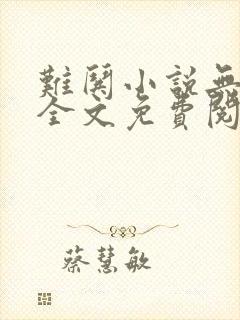 難關小說無
全文免費閱
蔡慧敏